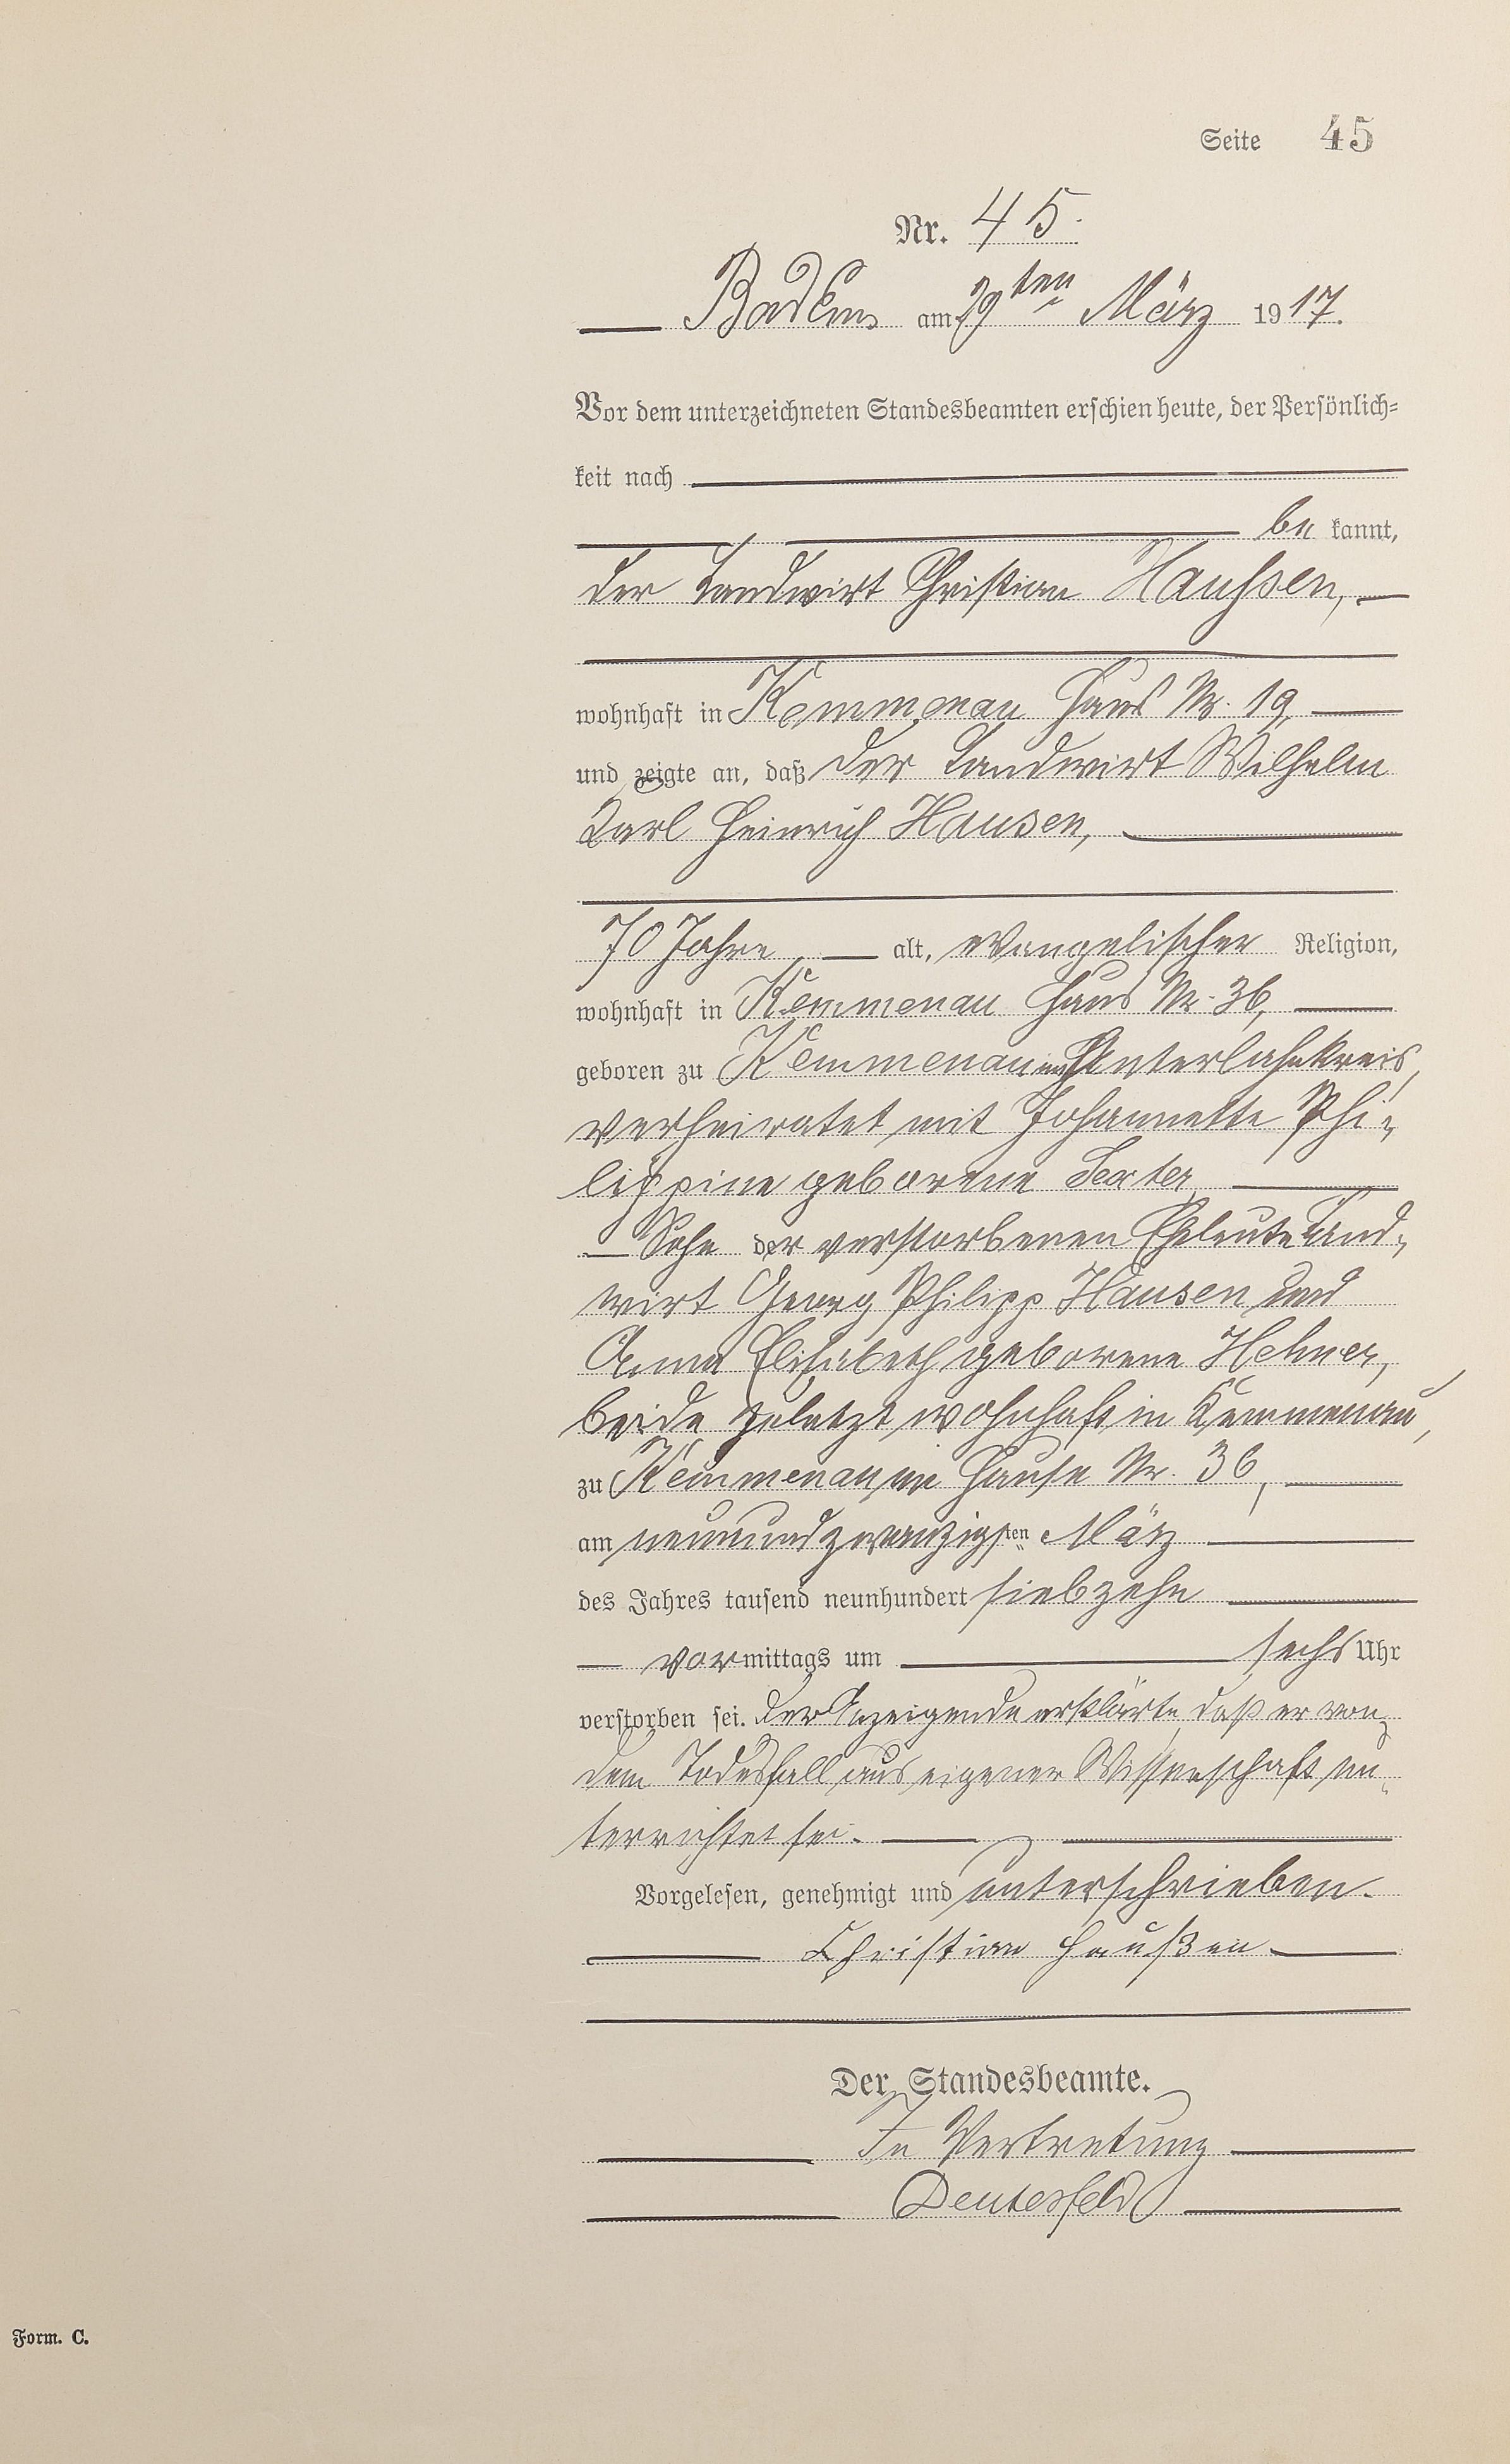 Seite 45
Nr. 45.
Bad Ems am 29ten März 1917.
Vor dem unterzeichneten Standesbeamten erschien heute, der Persönlich-
keit nach
be kannt,
der Landwirt Christian Haussen,
wohnhaft in Kemmenau Haus Nr. 19,
und zeigte an, daß der Landwirt Wilhelm
Karl Heinrich Hausen,
70 Jahre alt, evangelischer Religion,
wohnhaft in Kemmenau Haus Nr. 36,
geboren zu Kemmenau im Unterlahnkreis,
verheiratet mit Johannette Phi-
lippine geborene Sexter
Sohn der verstorbenen Eheleute Land-
wirt Georg Philipp Hausen und
Anna Elisabeth geborene Hehner,
beide zuletzt wohnhaft in Kemmenau,
zu Kemmenau im Hause Nr. 36,
am neunundzwanzigsten März
des Jahres tausend neunhundert siebzehn
vormittags um sechs Uhr
verstorben sei. Der Anzeigende erklärte, daß er von
dem Todesfall aus eigener Wissenschaft un-
terrichtet sei.
Vorgelesen, genehmigt und unterschrieben.
Christian Haußen
Der Standesbeamte.
In Vertretung
Deutesfeld
Form. C.